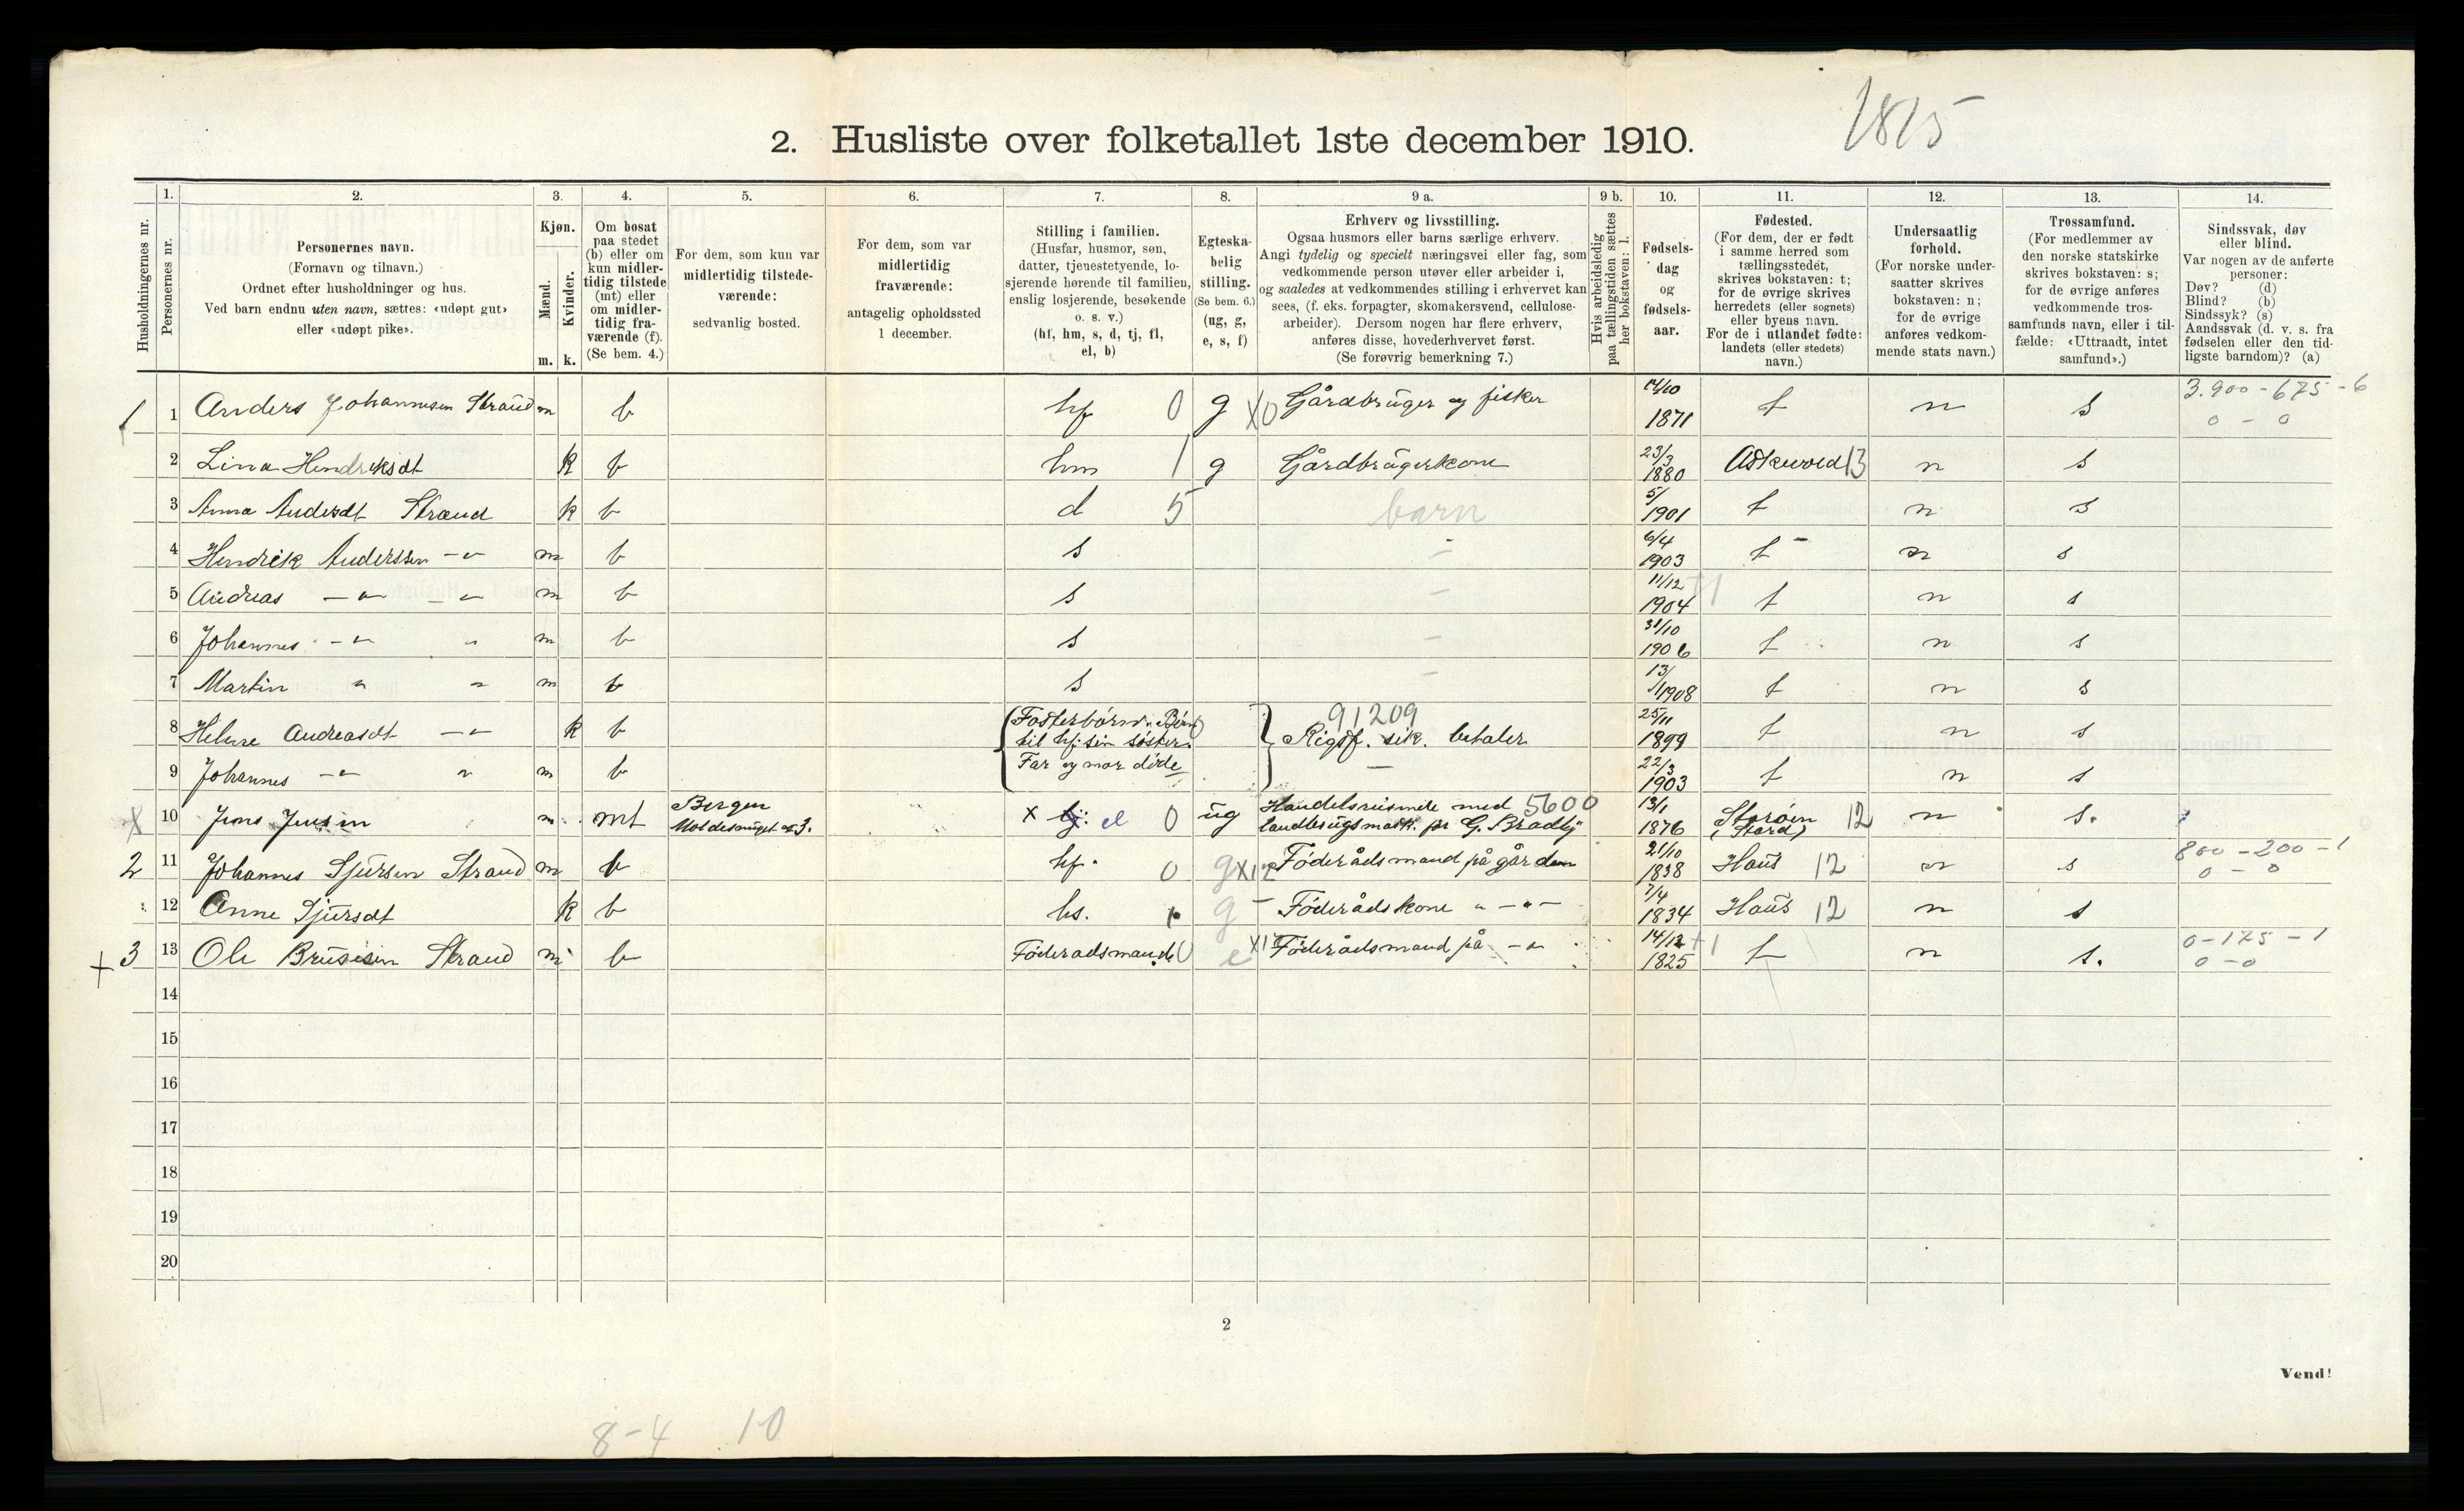 1815
2. Husliste over folketallet 1ste december 1910.
Husholdningernes nr.
1.
Personernes nr.
2.
Personernes navn.
(Fornavn og tilnavn.)
Ordnet efter husholdninger og hus.
Ved barn endnu uten navn, sættes: «udøpt gut»
eller «udøpt pike».
3.
Kjøn.
Mænd.
Kvinder.
m. k.
4.
Om bosat
paa stedet
(b) eller om
kun midler-
tidig tilstede
(mt) eller
om midler-
tidig fra-
værende (f).
(Se bem. 4.)
5.
For dem, som kun var
midlertidig tilstede-
værende:
sedvanlig bosted.
6.
For dem, som var
midlertidig
fraværende:
antagelig opholdssted
1 december.
7.
Stilling i familien.
(Husfar, husmor, søn,
datter, tjenestetyende, lo-
sjerende hørende til familien,
enslig losjerende, besøkende
o. s. v.)
(hf, hm, s, d, tj, fl,
el, b)
8.
Egteska-
belig
stilling.
(Se bem. 6.)
(ug, g,
e, s, f)
9 a.
Erhverv og livsstilling.
Ogsaa husmors eller barns særlige erhverv.
Angi tydelig og specielt næringsvei eller fag, som
vedkommende person utøver eller arbeider i,
og saaledes at vedkommendes stilling i erhvervet kan
sees, (f. eks. forpagter, skomakersvend, cellulose-
arbeider). Dersom nogen har flere erhverv,
anføres disse, hovederhvervet først.
(Se forøvrig bemerkning 7.)
9 b.
Hvis arbeidsledig
paa tællingstiden sættes
her bokstaven: l.
10.
Fødsels-
dag
og
fødsels-
aar.
11.
Fødested.
(For dem, der er født
i samme herred som
tællingsstedet,
skrives bokstaven: t;
for de øvrige skrives
herredets (eller sognets)
eller byens navn.
For de i utlandet fødte:
landets (eller stedets)
navn.)
12.
Undersaatlig
forhold.
(For norske under-
saatter skrives
bokstaven: n;
for de øvrige
anføres vedkom-
mende stats navn.)
13.
Trossamfund.
(For medlemmer av
den norske statskirke
skrives bokstaven: s;
for de øvrige anføres
vedkommende tros-
samfunds navn, eller i til-
fælde: «Uttraadt, intet
samfund».)
14.
Sindssvak, døv
eller blind.
Var nogen av de anførte
personer:
Døv? (d)
Blind? (b)
Sindssyk? (s)
Aandssvak (d. v. s. fra
fødselen eller den tid-
ligste barndom)? (a)
1 1 Anders Johannesen Strand m b hf 0 g X0 Gårdbruger og fisker 14/10 1871 t n s 3.900-675-6 0-0
2 Lina Hendriksdt k b hm 1 g Gårdbrugerkone 23/3 1880 Askevold 13 n s
3 Anna Andersdt Strand k b d 5 barn 5/ 1901 t n s
4 Hendrik Anderssen -"- m b s - 6/4 1903 t n s
5 Andreas -"- -"- m b s - 11/12 1904 t n s
6 Johannes -"- " m b s - 31/10 1906 t n s
7 Martin " " m b s - 13/1 1908 t n s
8 Helene Andreasdt -"- k b Fosterbørn. Børn til hf. sin søster. Far og mor døde 91209 Rigsf. sik. betaler 25/11 1899 t n s
9 Johannes -"- " m b 22/3 1903 t n s
X 10 Jens Jensen m mt Bergen x lj: el 0 ug Handelsreisende med 5600 landbrugsmask. for G. 13/1 1876 Storøen (Stord) 12 n s.
2 11 Johannes Sjursen Strand m b hf. 0 g X12 Føderådsmand på gården 21/10 1838 Haus 12 n s 800-200-1 0-0
12 Anne Sjursdt k b hs. g - Føderådskone " -"- 7/4 1834 Haus 12 n s
+ 3 13 Ole Strand m b Føderadsmand 0 e Føderådsmand på -"- 14/12 +1 1825 t n s. 0-175-1 0-0
14
15
16
17
18
19
20
2
Vend!
8-4 10